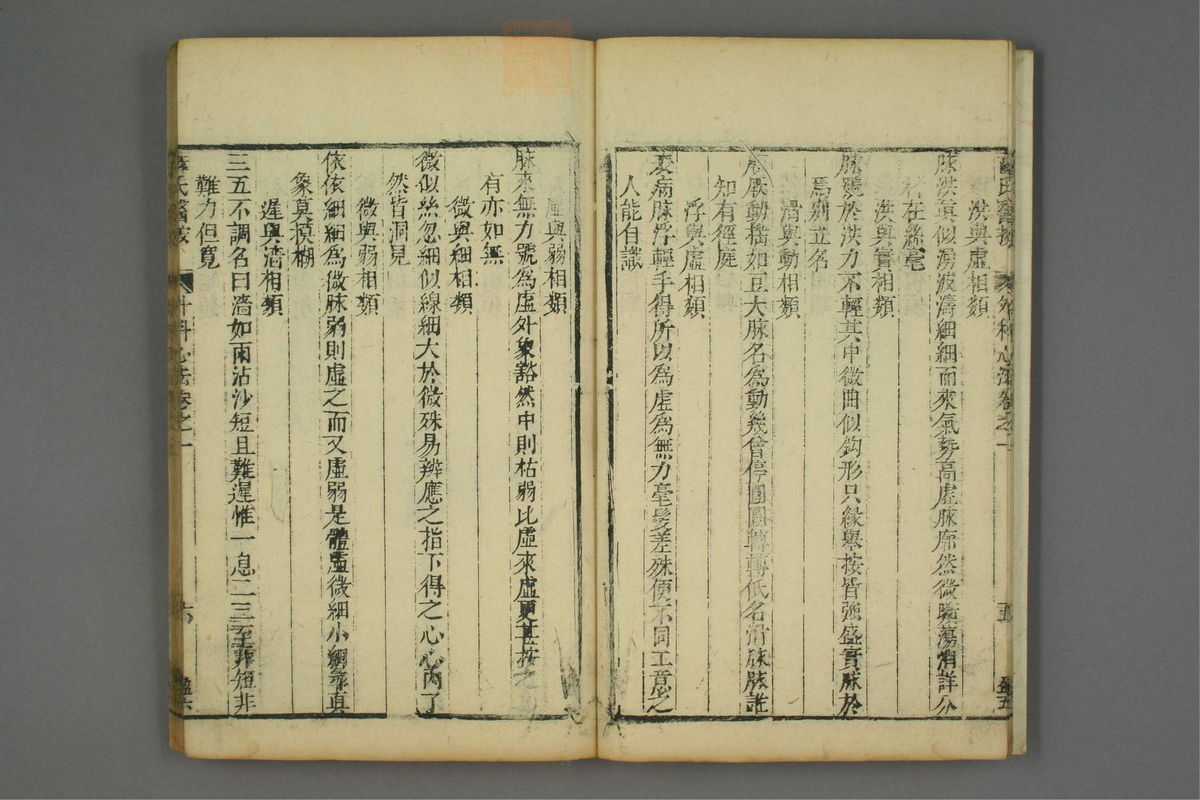 薛氏醫按 外科心法卷之一 五 盈五
洪與虛相類
脉洪真似湧波濤細細而來氣勢高虛脉廓然微暎蕩消詳分
在絲毫
洪與實相類
脉號於洪力不輕其中微曲似鈎形只緣舉按皆強盛實脉於
焉別立名
滑與動相類
厥厥動搖如豆大脉名為動幾曾停團團轉轉低名滑
知有徑庭
浮與虛相類
表病脉浮輕手得所以為虛為無力毫髮差殊便不同工意之
人能自識
虛與弱相類
脉來無力號為虛外象豁然中則枯弱比虛來虛更甚按之
有亦如無
微與細相類
微似絲忽細似線細大於微殊易辨應之指下得之心心內了
然皆洞見
微與弱相類
依依細細為微脉弱則虛之而又虛弱是體虛微細小細尋真
象莫模糊
遲與濇相類
三五不調名曰濇如雨沾沙短且難遲惟一息二三至非短非
難力但寬
薛氏醫按 外科心法卷之一 六 盈六